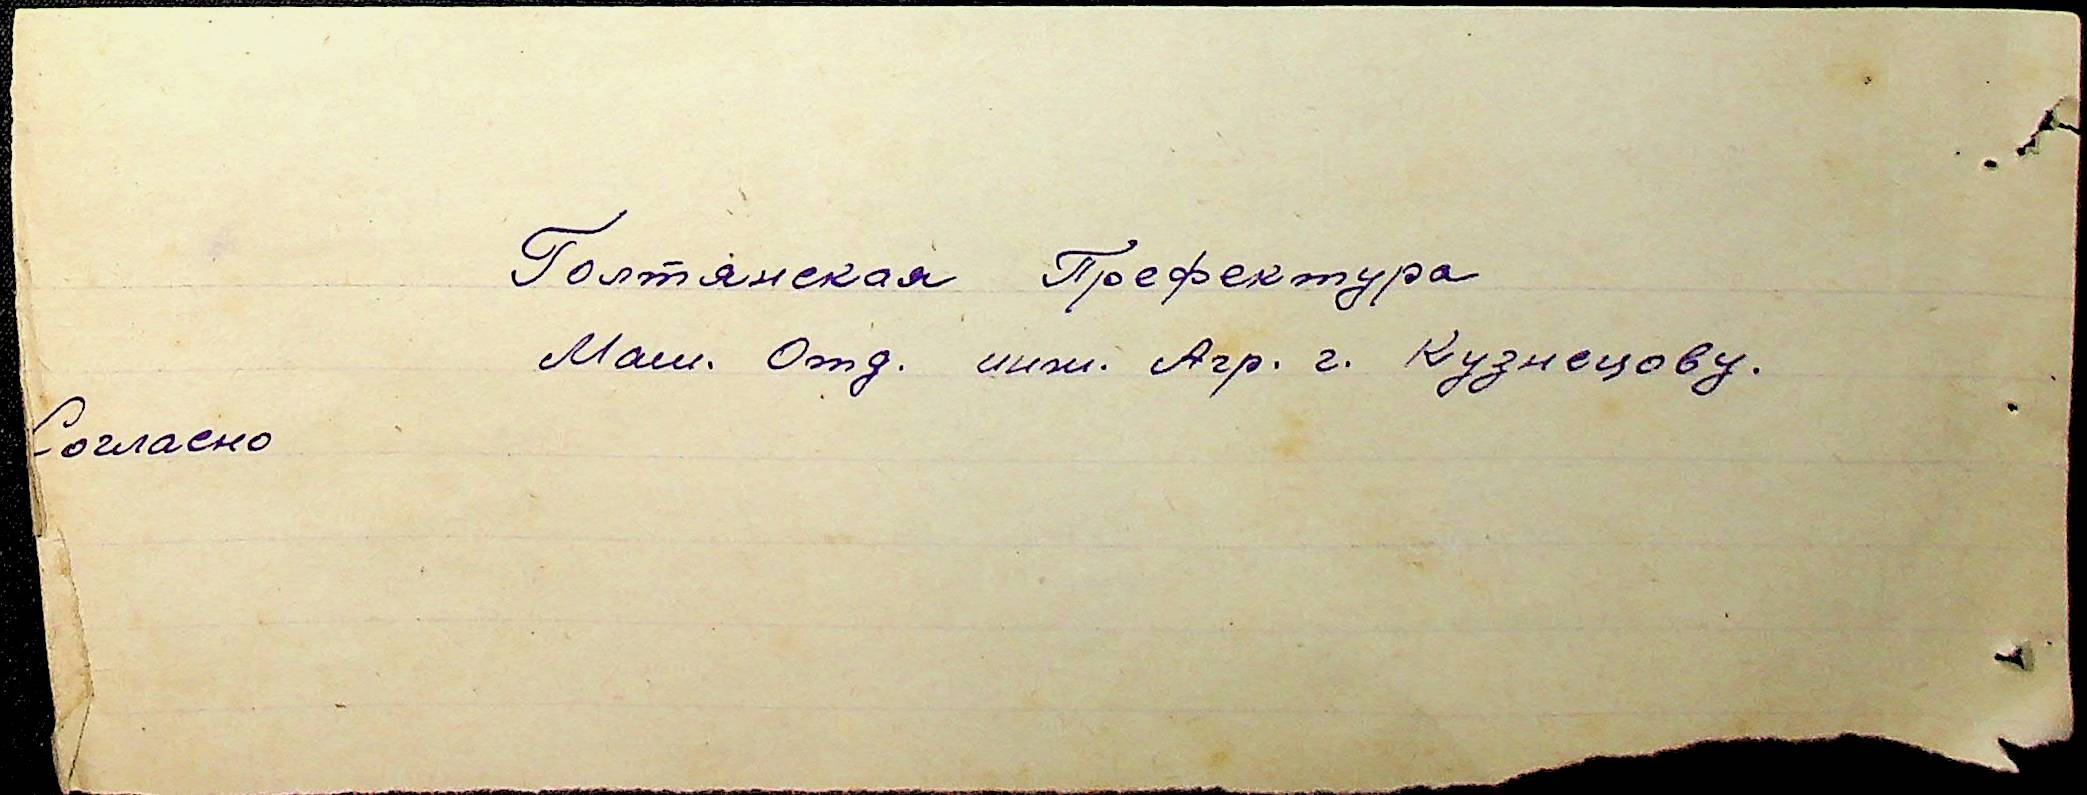 Голтянская Префектура
Маш. Отд. инж. Агр. г. Кузнецову.
Согласно